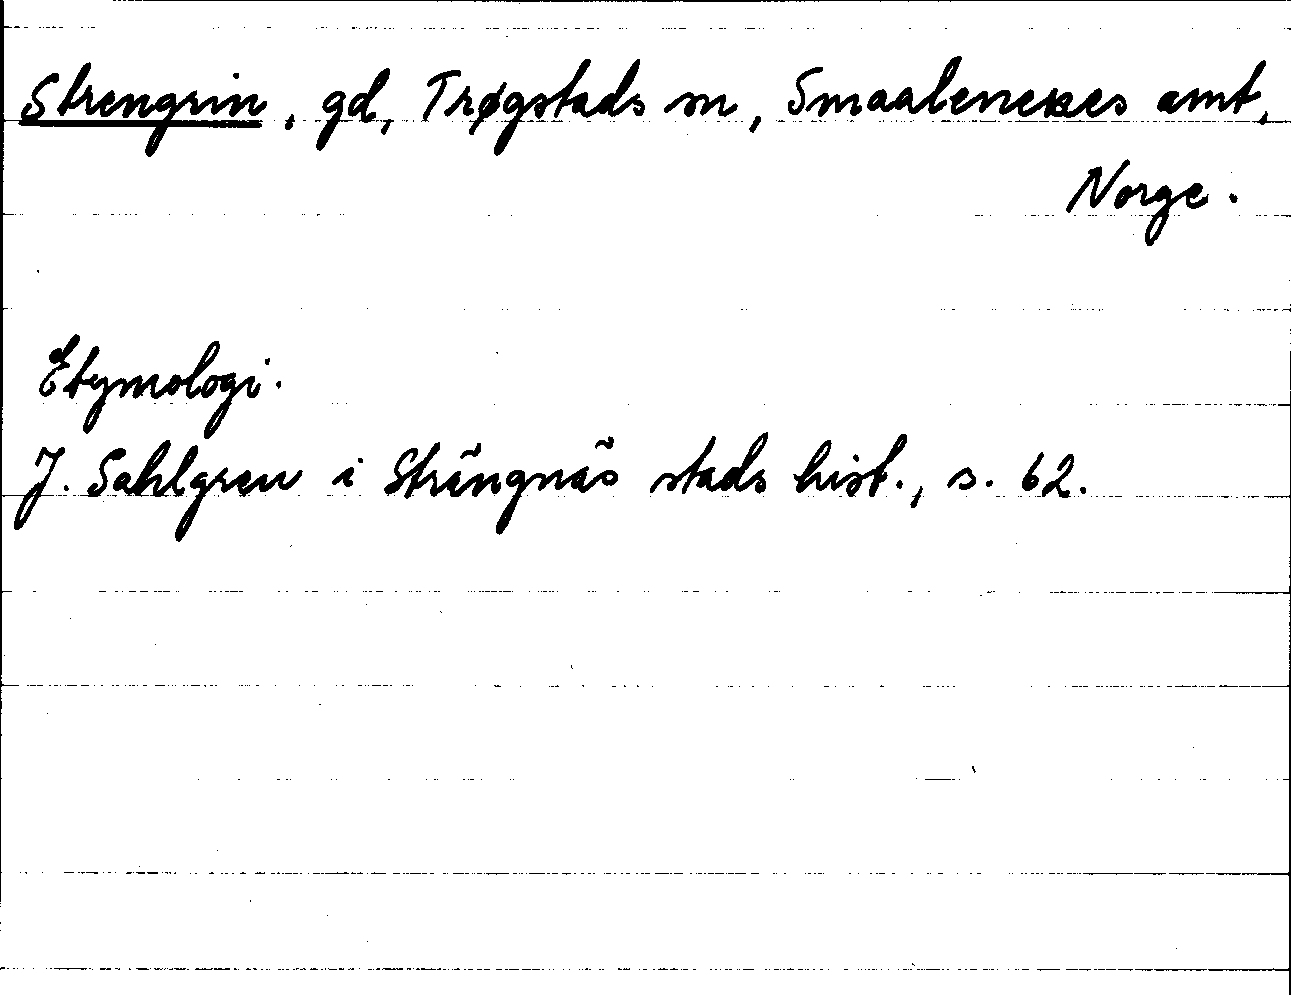 Strengrin, gd, Trøgstads sn, Smaalenenes amt,
Norge.
Etymologi.
J. Sahlgren i Strängnäs stads hist., s. 62.